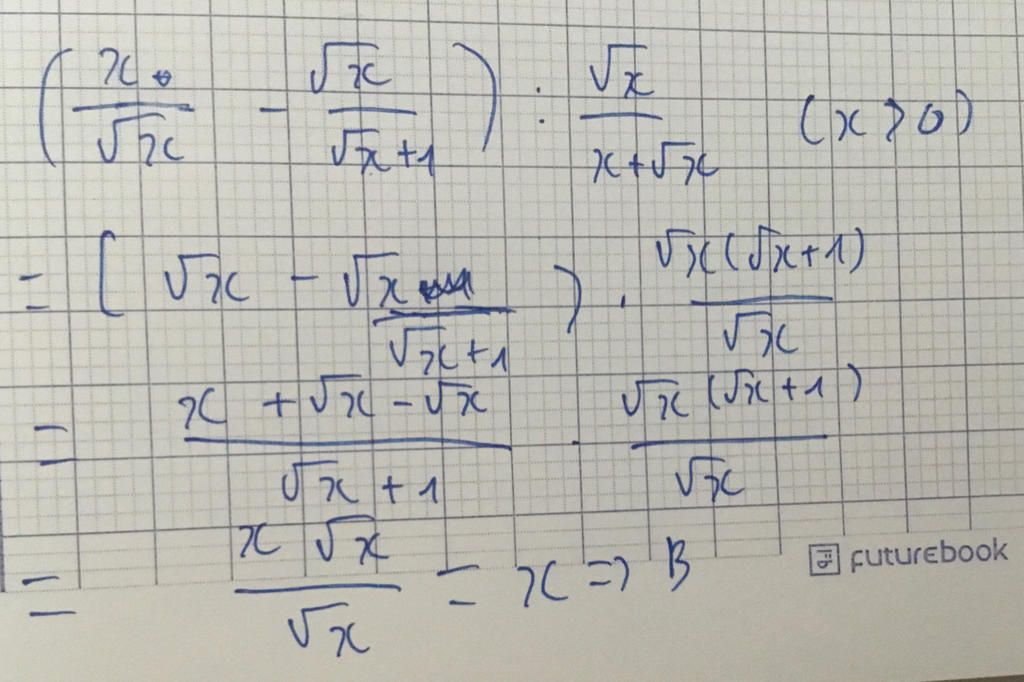 (x/√x - √x/(√x+1)) : √x/(x+√x) (x>0)
= [√x - √x/(√x+1)) . √x(√x+1)/√x
= (x+√x-√x)/(√x+1) . √x(√x+1)/√x
= x√x/√x = x => B
futurebook